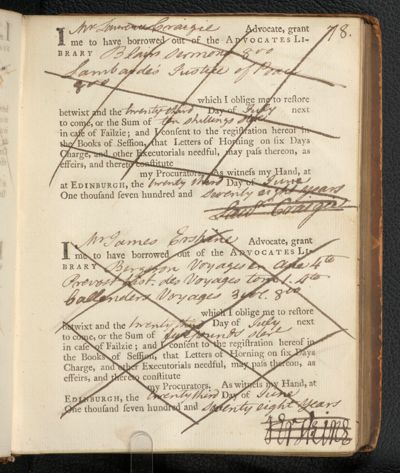 78.
I Mr Lawrence Craigie Advocate, grant
me to have borrowed out of the ADVOCATES LI-
BRARY Blairs Sermons 8vo
Lambarde's Justice of Peace
8vo
which I oblige me to restore
betwixt and the twenty third Day of July next
to come, or the Sum of ten shillings sterl
in case of Failzie; and I consent to the registration hereof in
the Books of Session, that Letters of Horning on six Days
Charge, and other Executorials needful, may pass thereon, as
effeirs, and thereto constitute
my Procurators. As witness my Hand, at
at EDINBURGH, the twenty third Day of June
One thousand seven hundred and seventy eight years
Lawr Craigie
I Mr James Erskine Advocate, grant
me to have borrowed out of the ADVOCATES LI-
BRARY Bergeron Voyages en Asie 4to
Prevost hist. des Voyages tom 1. 4to
Callenders Voyages 3 vol. 8vo
which I oblige me to restore
betwixt and the twenty third Day of July next
to come, or the Sum of pounds sterl
in case of Failzie; and I consent to the registration hereof in
the Books of Session, that Letters of Horning on six Days
Charge, and other Executorials needful, may pass thereon, as
effeirs, and thereto constitute
my Procurators. As witness my Hand, at
EDINBURGH, the twenty third Day of June
One thousand seven hundred and seventy eight years